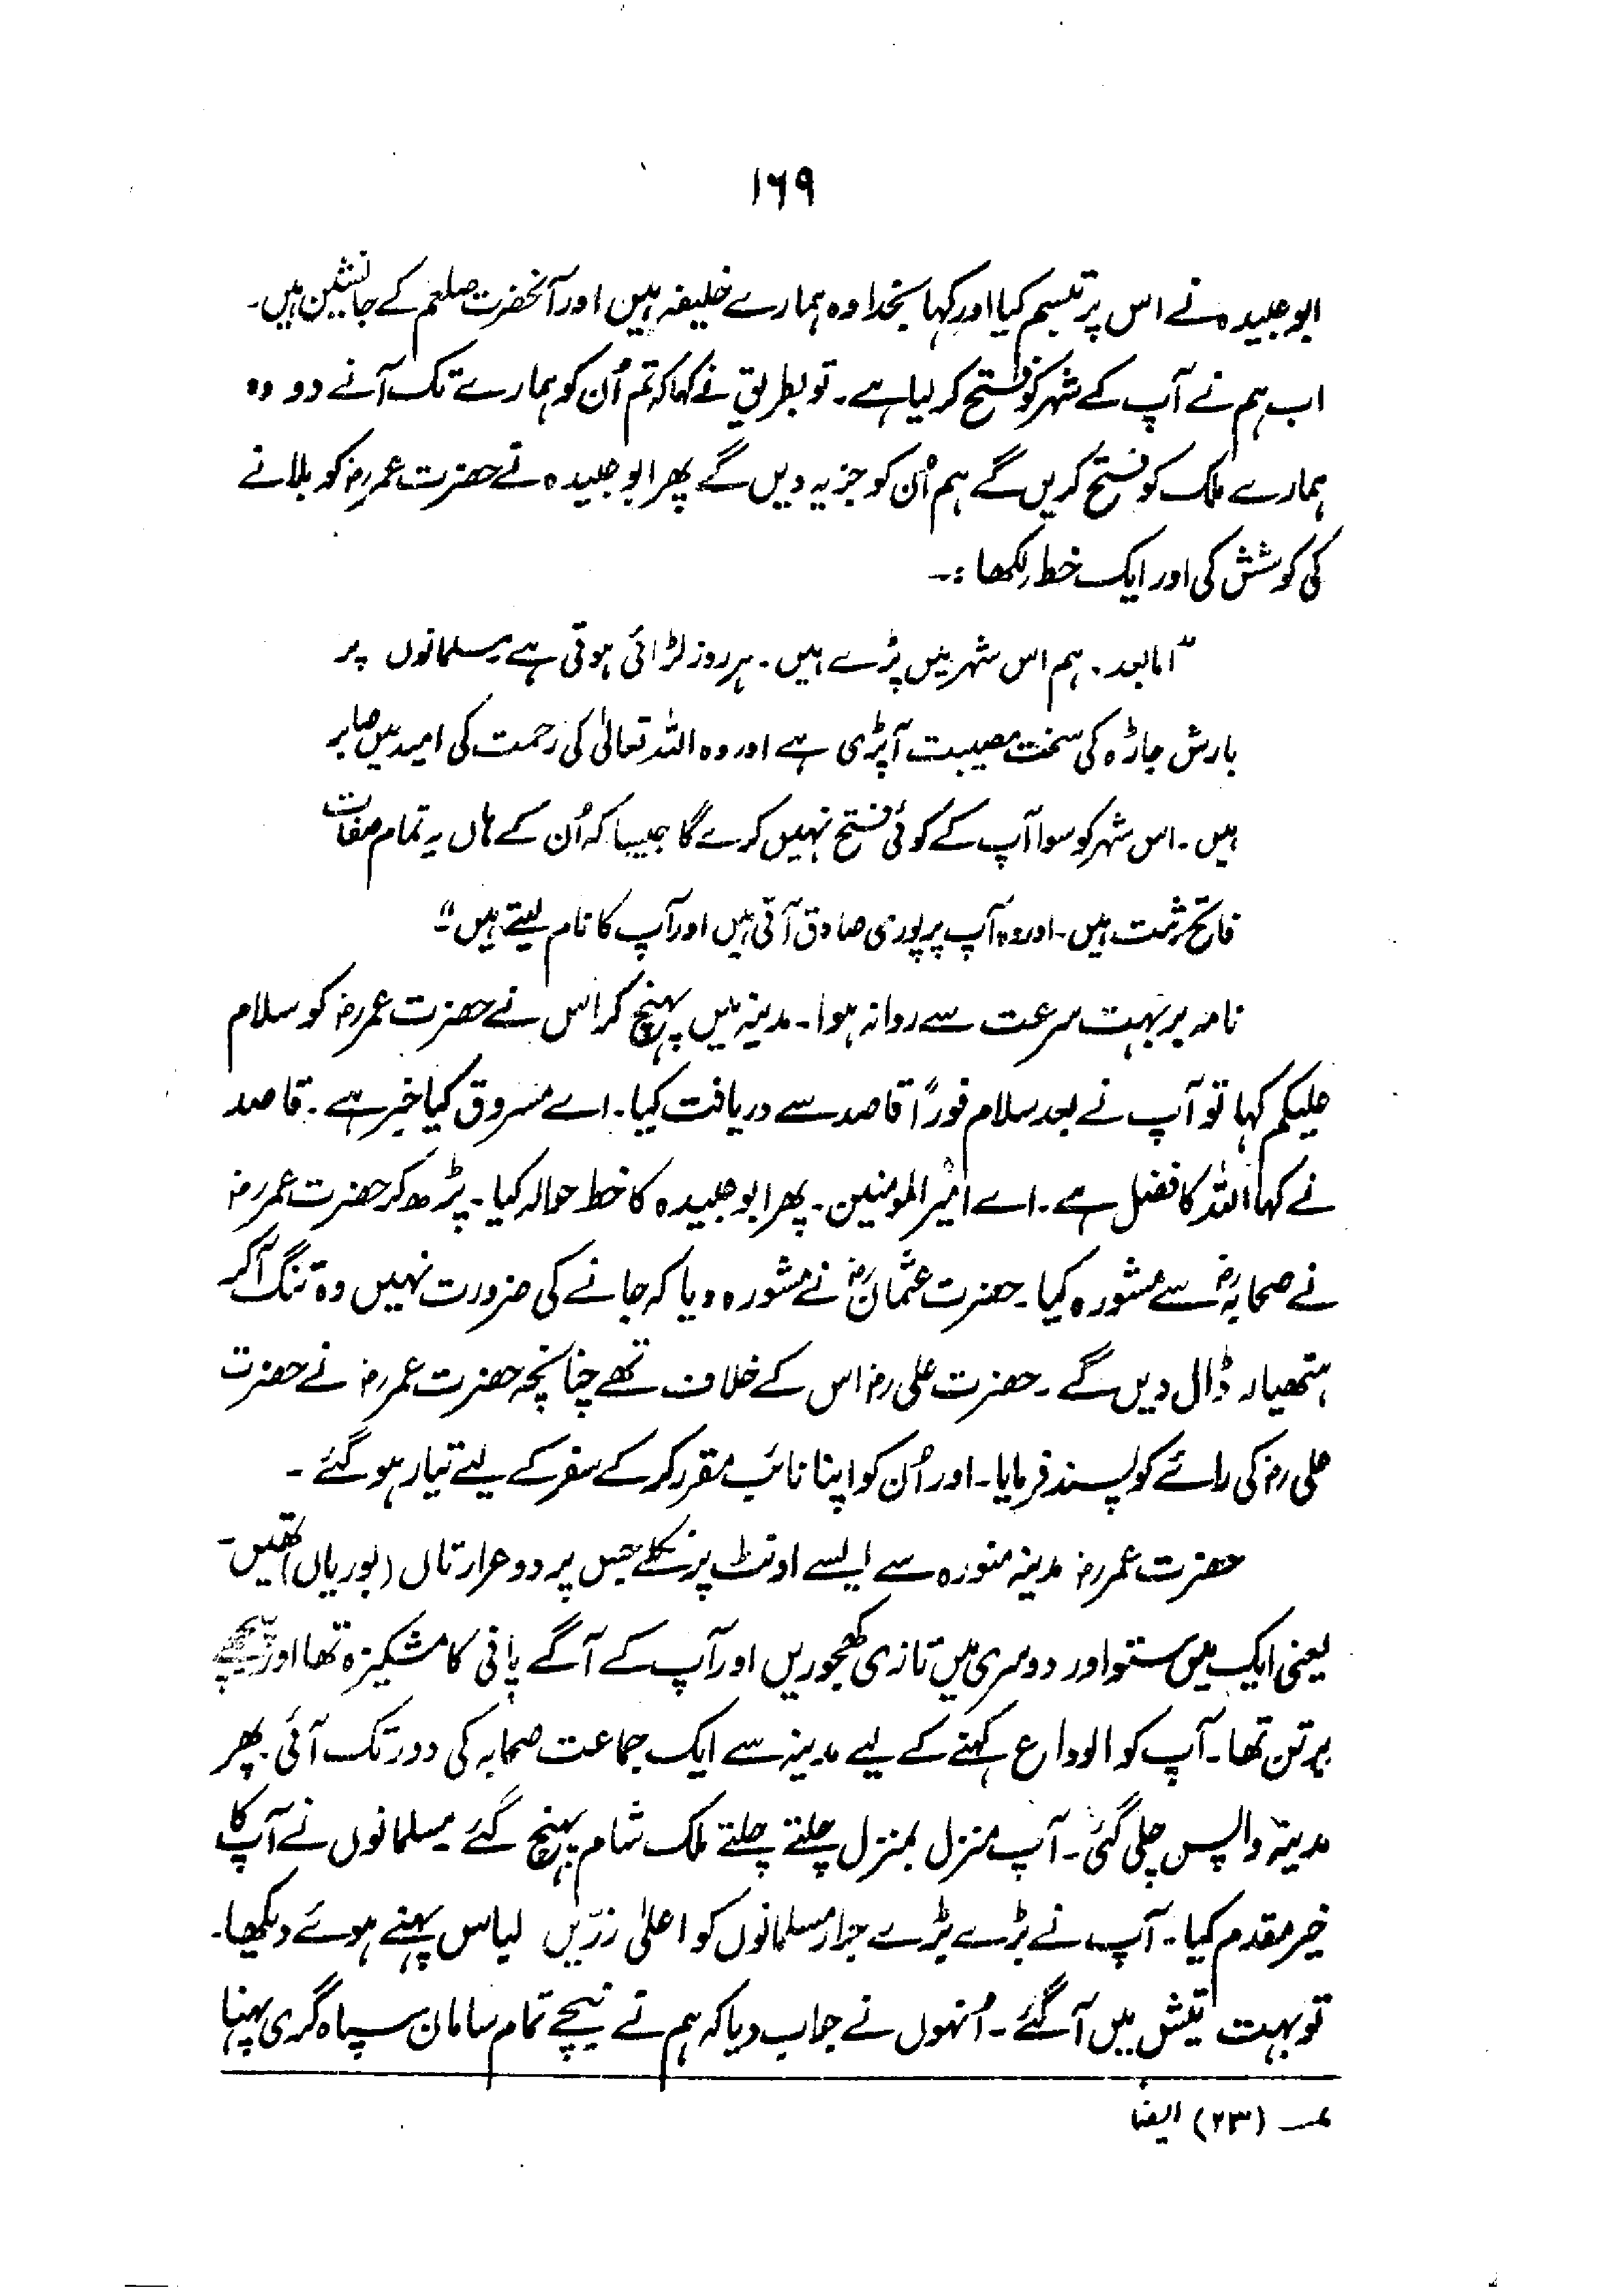 ۱۶۹
ابو عبیدہ نے اس پر تبسم کیا اور کہا بخدا وہ ہمارے خلیفہ ہیں اور آنحضرت صلعم کے جانشین ہیں۔
اب ہم نے آپ کے شہر کو فتح کر لیا ہے۔ تو بطریق نے کہا کہ تم اُن کو ہمارے تک آنے دو وہ
ہمارے ملک کو فتح کریں گے ہم اُن کو جزیہ دیں گے پھر ابو عبیدہ نے حضرت عمر رض کو بلانے
کی کوشش کی اور ایک خط لکھا :۔
"امابعد۔ ہم اس شہر میں پڑے ہیں۔ ہر روز لڑائی ہوتی ہے مسلمانوں پر
بارش جاڑہ کی سخت مصیبت آپڑی ہے اور وہ اللہ تعالیٰ کی رحمت کی امید میں صابر
ہیں۔ اس شہر کو سوا آپ کے کوئی فتح نہیں کرے گا جیسا کہ اُن کے ہاں یہ تمام صفات
فاتح ثبت ہیں۔ اور وہ آپ پر پوری صادق آتی ہیں اور آپ کا نام لیتے ہیں"۔
نامہ بر بہت سرعت سے روانہ ہوا۔ مدینہ میں پہنچ کر اس نے حضرت عمر رض کو سلام
علیکم کہا تو آپ نے بعد سلام فوراً قاصد سے دریافت کیا۔ اے مسروق کیا خبر ہے۔ قاصد
نے کہا اللہ کا فضل ہے۔ اے امیر المومنین۔ پھر ابو عبیدہ کا خط حوالہ کیا۔ پڑھ کر حضرت عمر رض
نے صحابہ رض سے مشورہ کیا۔ حضرت عثمان رض نے مشورہ دیا کہ جانے کی ضرورت نہیں وہ تنگ آکر
ہتھیار ڈال دیں گے۔ حضرت علی رض اس کے خلاف تھے چنانچہ حضرت عمر رض نے حضرت
علی رض کی رائے کو پسند فرمایا۔ اور اُن کو اپنا نائب مقرر کر کے سفر کے لیے تیار ہو گئے ۔
حضرت عمر رض مدینہ منورہ سے ایسے اونٹ پر نکلے جس پر دو غرارتاں (بوریاں) تھیں۔
یعنی ایک میں ستو اور دوسری میں تازی کھجوریں اور آپ کے آگے پانی کا مشکیزہ تھا اور پیچھے
برتن تھا۔ آپ کو الوداع کہنے کے لیے مدینہ سے ایک جماعت صحابہ کی دور تک آئی۔ پھر
مدینہ واپس چلی گئی۔ آپ منزل بمنزل چلتے چلتے ملک شام پہنچ گئے مسلمانوں نے آپ کا
خیر مقدم کیا۔ آپ نے بڑے بڑے جرار مسلمانوں کو اعلیٰ زرّیں لباس پہنے ہوئے دیکھا۔
تو بہت تیش میں آ گئے۔ اُنہوں نے جواب دیا کہ ہم نے نیچے تمام سامان سپاہ گری پہنا
(۲۳) ایضاً